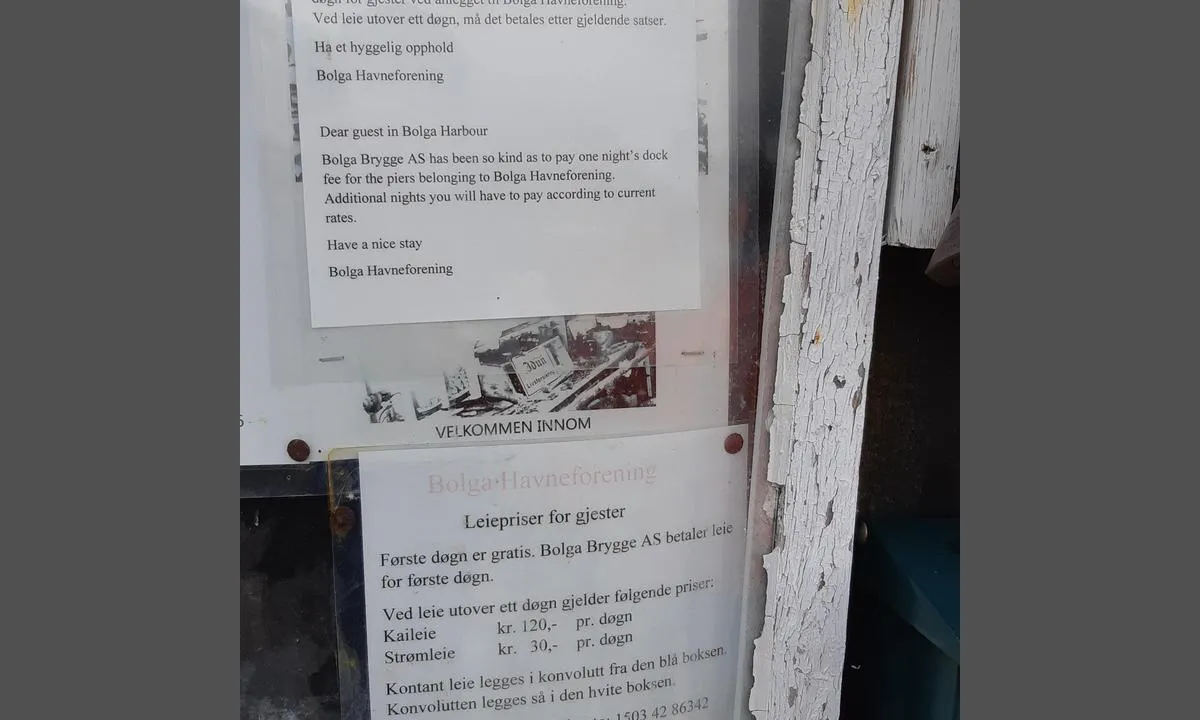 døgn for gjester ved anlegget til Bolga Havneforening.
Ved leie utover ett døgn, må det betales etter gjeldende satser.
Ha et hyggelig opphold
Bolga Havneforening
Dear guest in Bolga Harbour
Bolga Brygge AS has been so kind as to pay one night's dock
fee for the piers belonging to Bolga Havneforening.
Additional nights you will have to pay according to current
rates.
Have a nice stay
Bolga Havneforening
VELKOMMEN INNOM
Bolga Havneforening
Leiepriser for gjester
Første døgn er gratis. Bolga Brygge AS betaler leie
for første døgn.
Ved leie utover ett døgn gjelder følgende priser:
Kaileie kr. 120,- pr. døgn
Strømleie kr. 30,- pr. døgn
Kontant leie legges i konvolutt fra den blå boksen.
Konvolutten legges så i den hvite boksen.
1503 42 86342